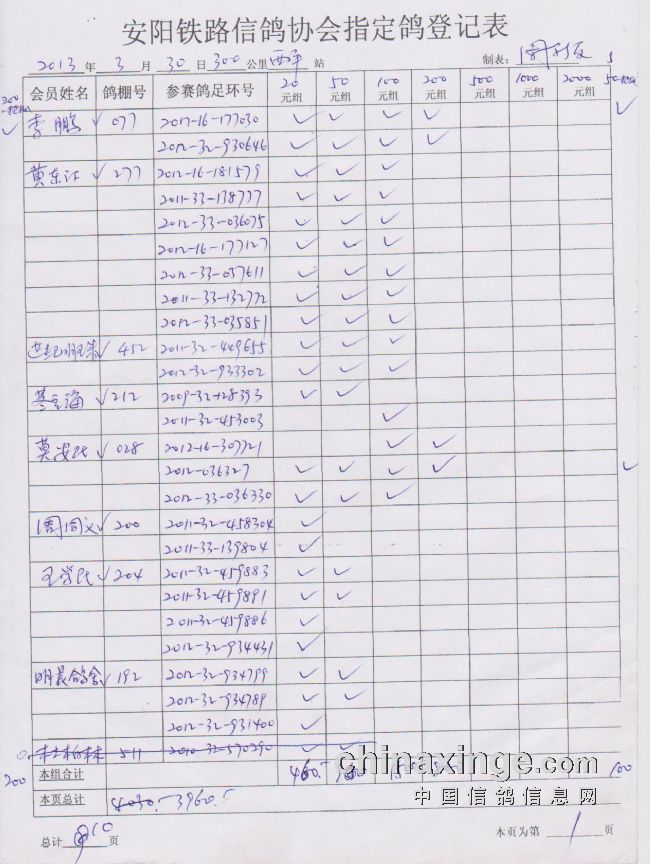 安阳铁路信鸽协会指定鸽登记表
2013 年 3 月 30 日 300 公里 西平 站 制表:
会员姓名 鸽棚号 参赛鸽足环号 20元组 50元组 100元组 200元组 500元组 1000元组 2000元组
李鹏 ✓ 077 2012-16-177030 ✓ ✓ ✓ ✓
2012-32-930646 ✓ ✓ ✓ ✓
黄东江 ✓ 277 2012-16-181579 ✓ ✓ ✓
2011-33-138777 ✓ ✓ ✓
2012-33-036075 ✓ ✓ ✓
2012-16-177127 ✓ ✓ ✓
2012-33-037611 ✓ ✓ ✓
2011-33-132772 ✓ ✓ ✓
2012-33-035851 ✓ ✓ ✓
✓ 452 2011-32-409655 ✓ ✓ ✓
2012-32-933302 ✓ ✓ ✓
✓ 212 2009-32-128393 ✓ ✓
2011-32-453003 ✓
✓ 028 2012-16-307721 ✓ ✓
2012-036327 ✓ ✓ ✓ ✓ ✓
2012-33-036330 ✓ ✓ ✓
周同义 ✓ 200 2011-32-458304 ✓
2011-33-139804 ✓
王学民 ✓ 204 2011-32-459883 ✓ ✓
2011-32-459891 ✓ ✓
2011-32-459886 ✓
2012-32-934431 ✓
明晨鸽舍 ✓ 192 2012-32-934799 ✓ ✓
2012-32-934789 ✓ ✓
2012-32-931400 ✓
511 2010-32-570290
200 本组合计 460 100
本页总计 4030 3960
总计 10 页 本页为第 1 页
chinaxinge.com
中国信鸽信息网